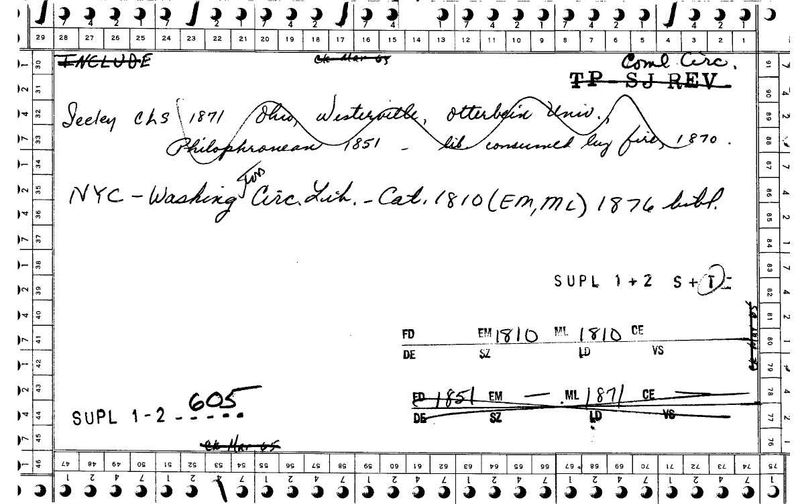 29 28 27 26 25 24 23 22 21 20 19 18 17 16 15 14 13 12 11 10 9 8 7 6 5 4 3 2 1
INCLUDE
Ck Mar 65
Coml Circ.
TP-SJ REV
Seeley Chs 1871 Ohio, Westerville, Otterbein Univ.,
Philophronean 1851 - lib consumed by fire, 1870.
NYC - Washington Circ. Lib. - Cat. 1810 (EM, ML) 1876 bibl.
SUPL 1+2 S+TE
FD EM 1810 ML 1810 CE
DE SZ LD VS
Ck Mar 65
FD 1851 EM — ML 1871 CE —
DE SZ LD VS
SUPL 1-2 605
Ck Mar 65
30 31 32 33 34 35 36 37 38 39 40 41 42 43 44 45 46
47 48 49 50 51 52 53 54 55 56 57 58 59 60 61 62 63 64 65 66 67 68 69 70 71 72 73 74 75
76 77 78 79 80 81 82 83 84 85 86 87 88 89 90 91